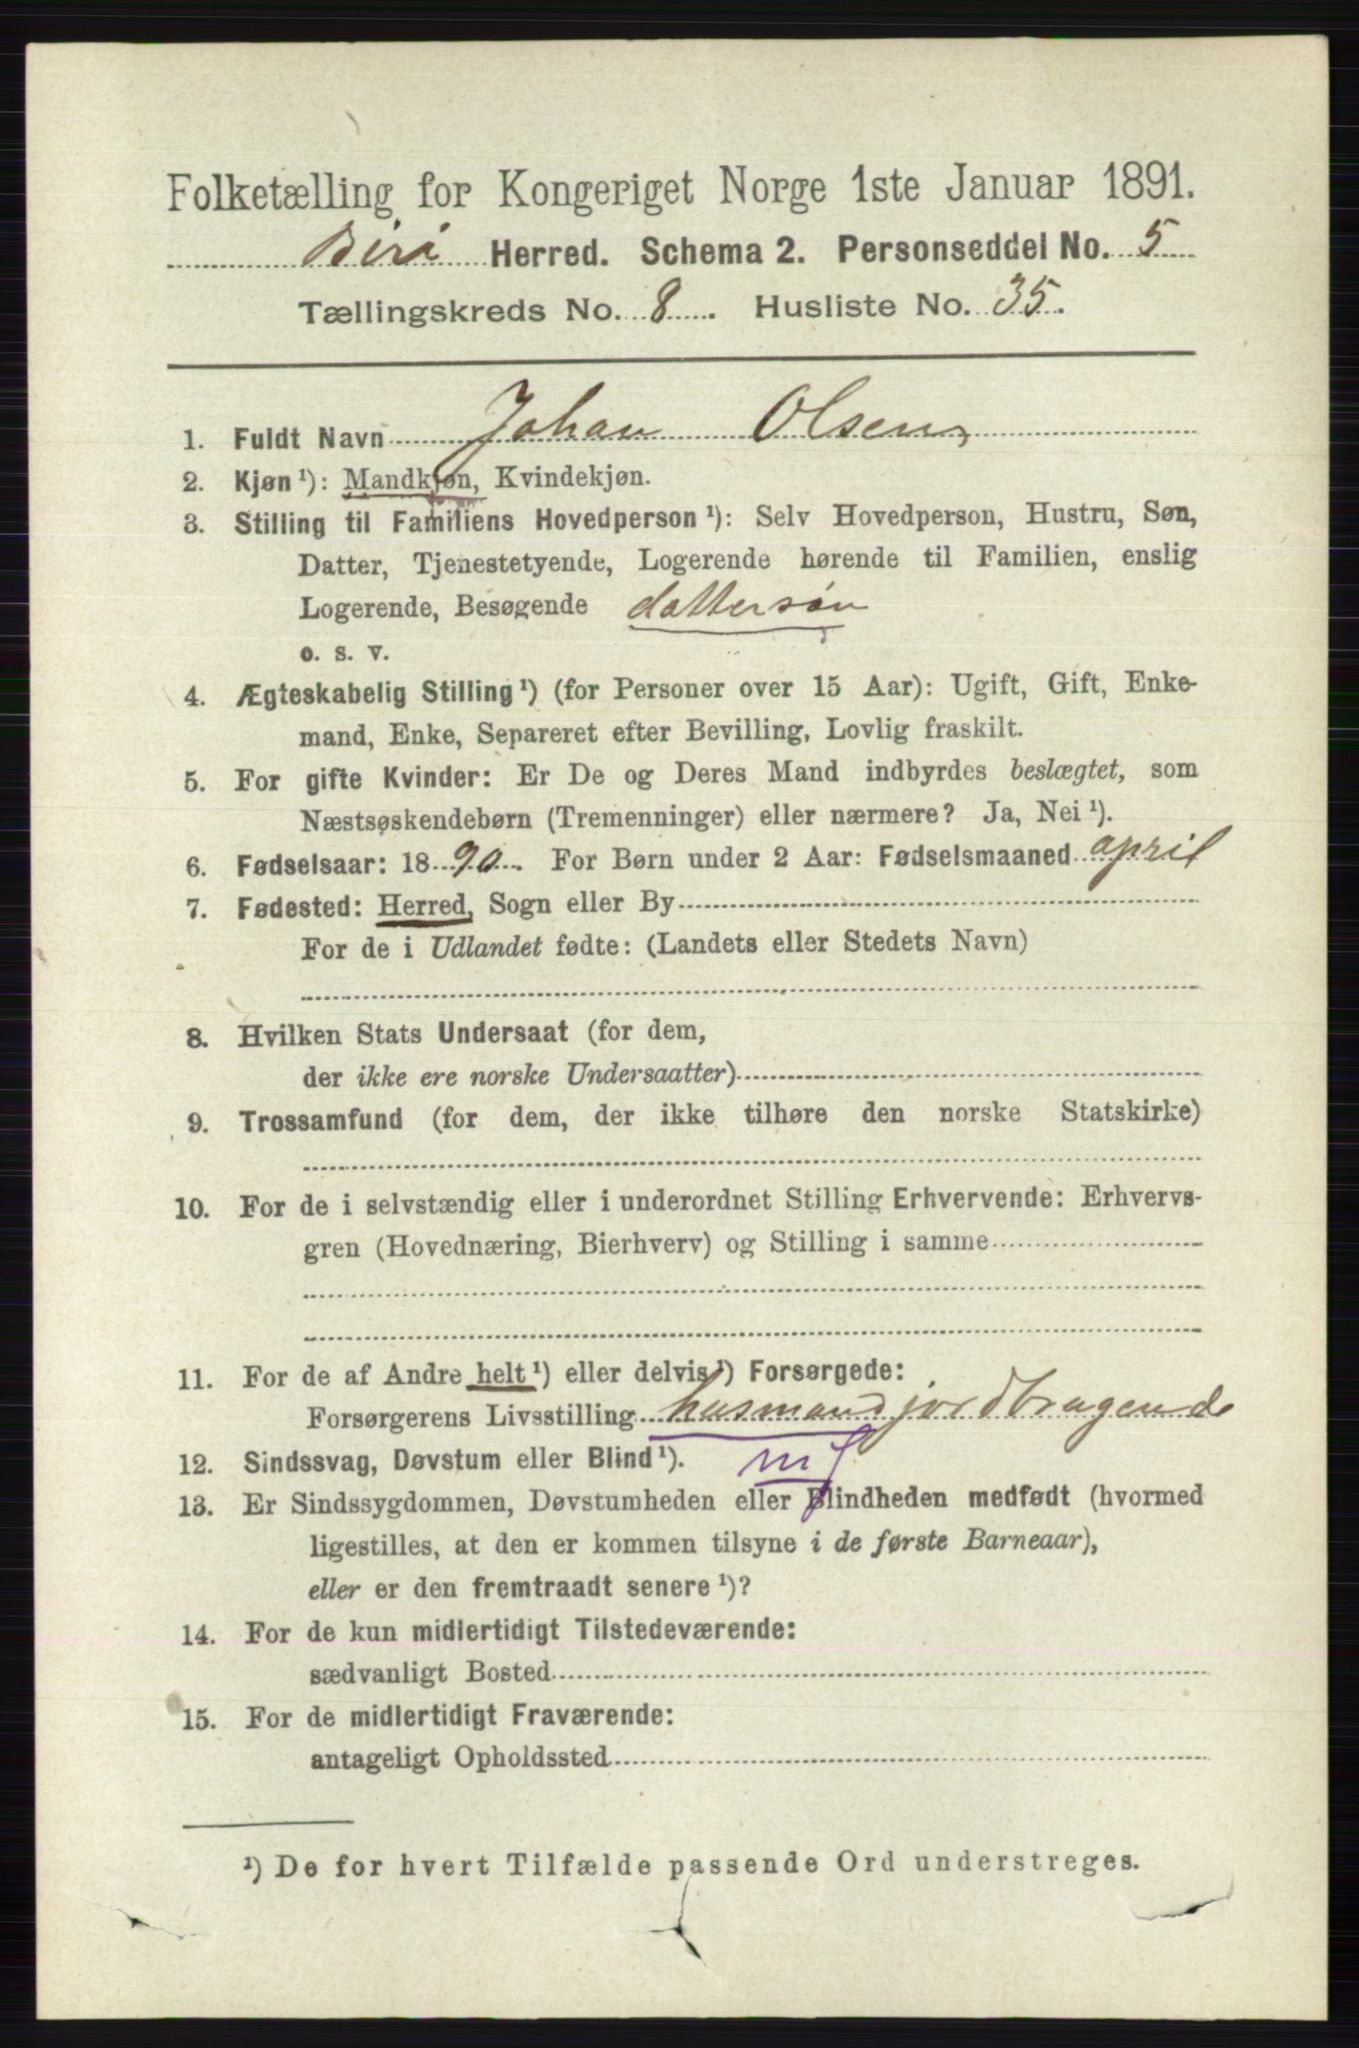 Folketælling for Kongeriget Norge 1ste Januar 1891.
Biri Herred. Schema 2. Personseddel No. 5
Tællingskreds No. 8. Husliste No. 35.
1. Fuldt Navn Johan Olsen
2. Kjøn¹): Mandkjøn, Kvindekjøn.
3. Stilling til Familiens Hovedperson¹): Selv Hovedperson, Hustru, Søn,
Datter, Tjenestetyende, Logerende hørende til Familien, enslig
Logerende, Besøgende dattersøn
o. s. v.
4. Ægteskabelig Stilling¹) (for Personer over 15 Aar): Ugift, Gift, Enke-
mand, Enke, Separeret efter Bevilling, Lovlig fraskilt.
5. For gifte Kvinder: Er De og Deres Mand indbyrdes beslægtet, som
Næstsøskendebørn (Tremenninger) eller nærmere? Ja, Nei¹).
6. Fødselsaar: 1890. For Børn under 2 Aar: Fødselsmaaned april
7. Fødested: Herred, Sogn eller By
For de i Udlandet fødte: (Landets eller Stedets Navn)
8. Hvilken Stats Undersaat (for dem,
der ikke ere norske Undersaatter)
9. Trossamfund (for dem, der ikke tilhøre den norske Statskirke)
10. For de i selvstændig eller i underordnet Stilling Erhvervende: Erhvervs-
gren (Hovednæring, Bierhverv) og Stilling i samme
11. For de af Andre helt¹) eller delvis¹) Forsørgede:
Forsørgerens Livsstilling husmand jordbrugende
12. Sindssvag, Døvstum eller Blind¹). mf
13. Er Sindssygdommen, Døvstumheden eller Blindheden medfødt (hvormed
ligestilles, at den er kommen tilsyne i de første Barneaar),
eller er den fremtraadt senere¹)?
14. For de kun midlertidigt Tilstedeværende:
sædvanligt Bosted
15. For de midlertidigt Fraværende:
antageligt Opholdssted
¹) De for hvert Tilfælde passende Ord understreges.